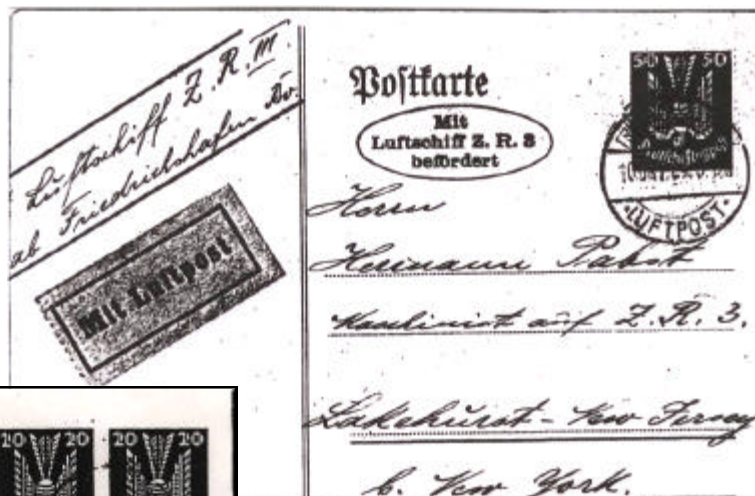 Luftschiff Z. R. III.
ab Friedrichshafen Bo.
Mit Luftpost
Postkarte
Mit
Luftschiff Z. R. 3
befördert
50 50
LUFTPOST
Herrn
Hermann Pabst
Maschinist auf Z. R. 3.
Lakehurst - New Jersey
b. New York.
20 20 20 20